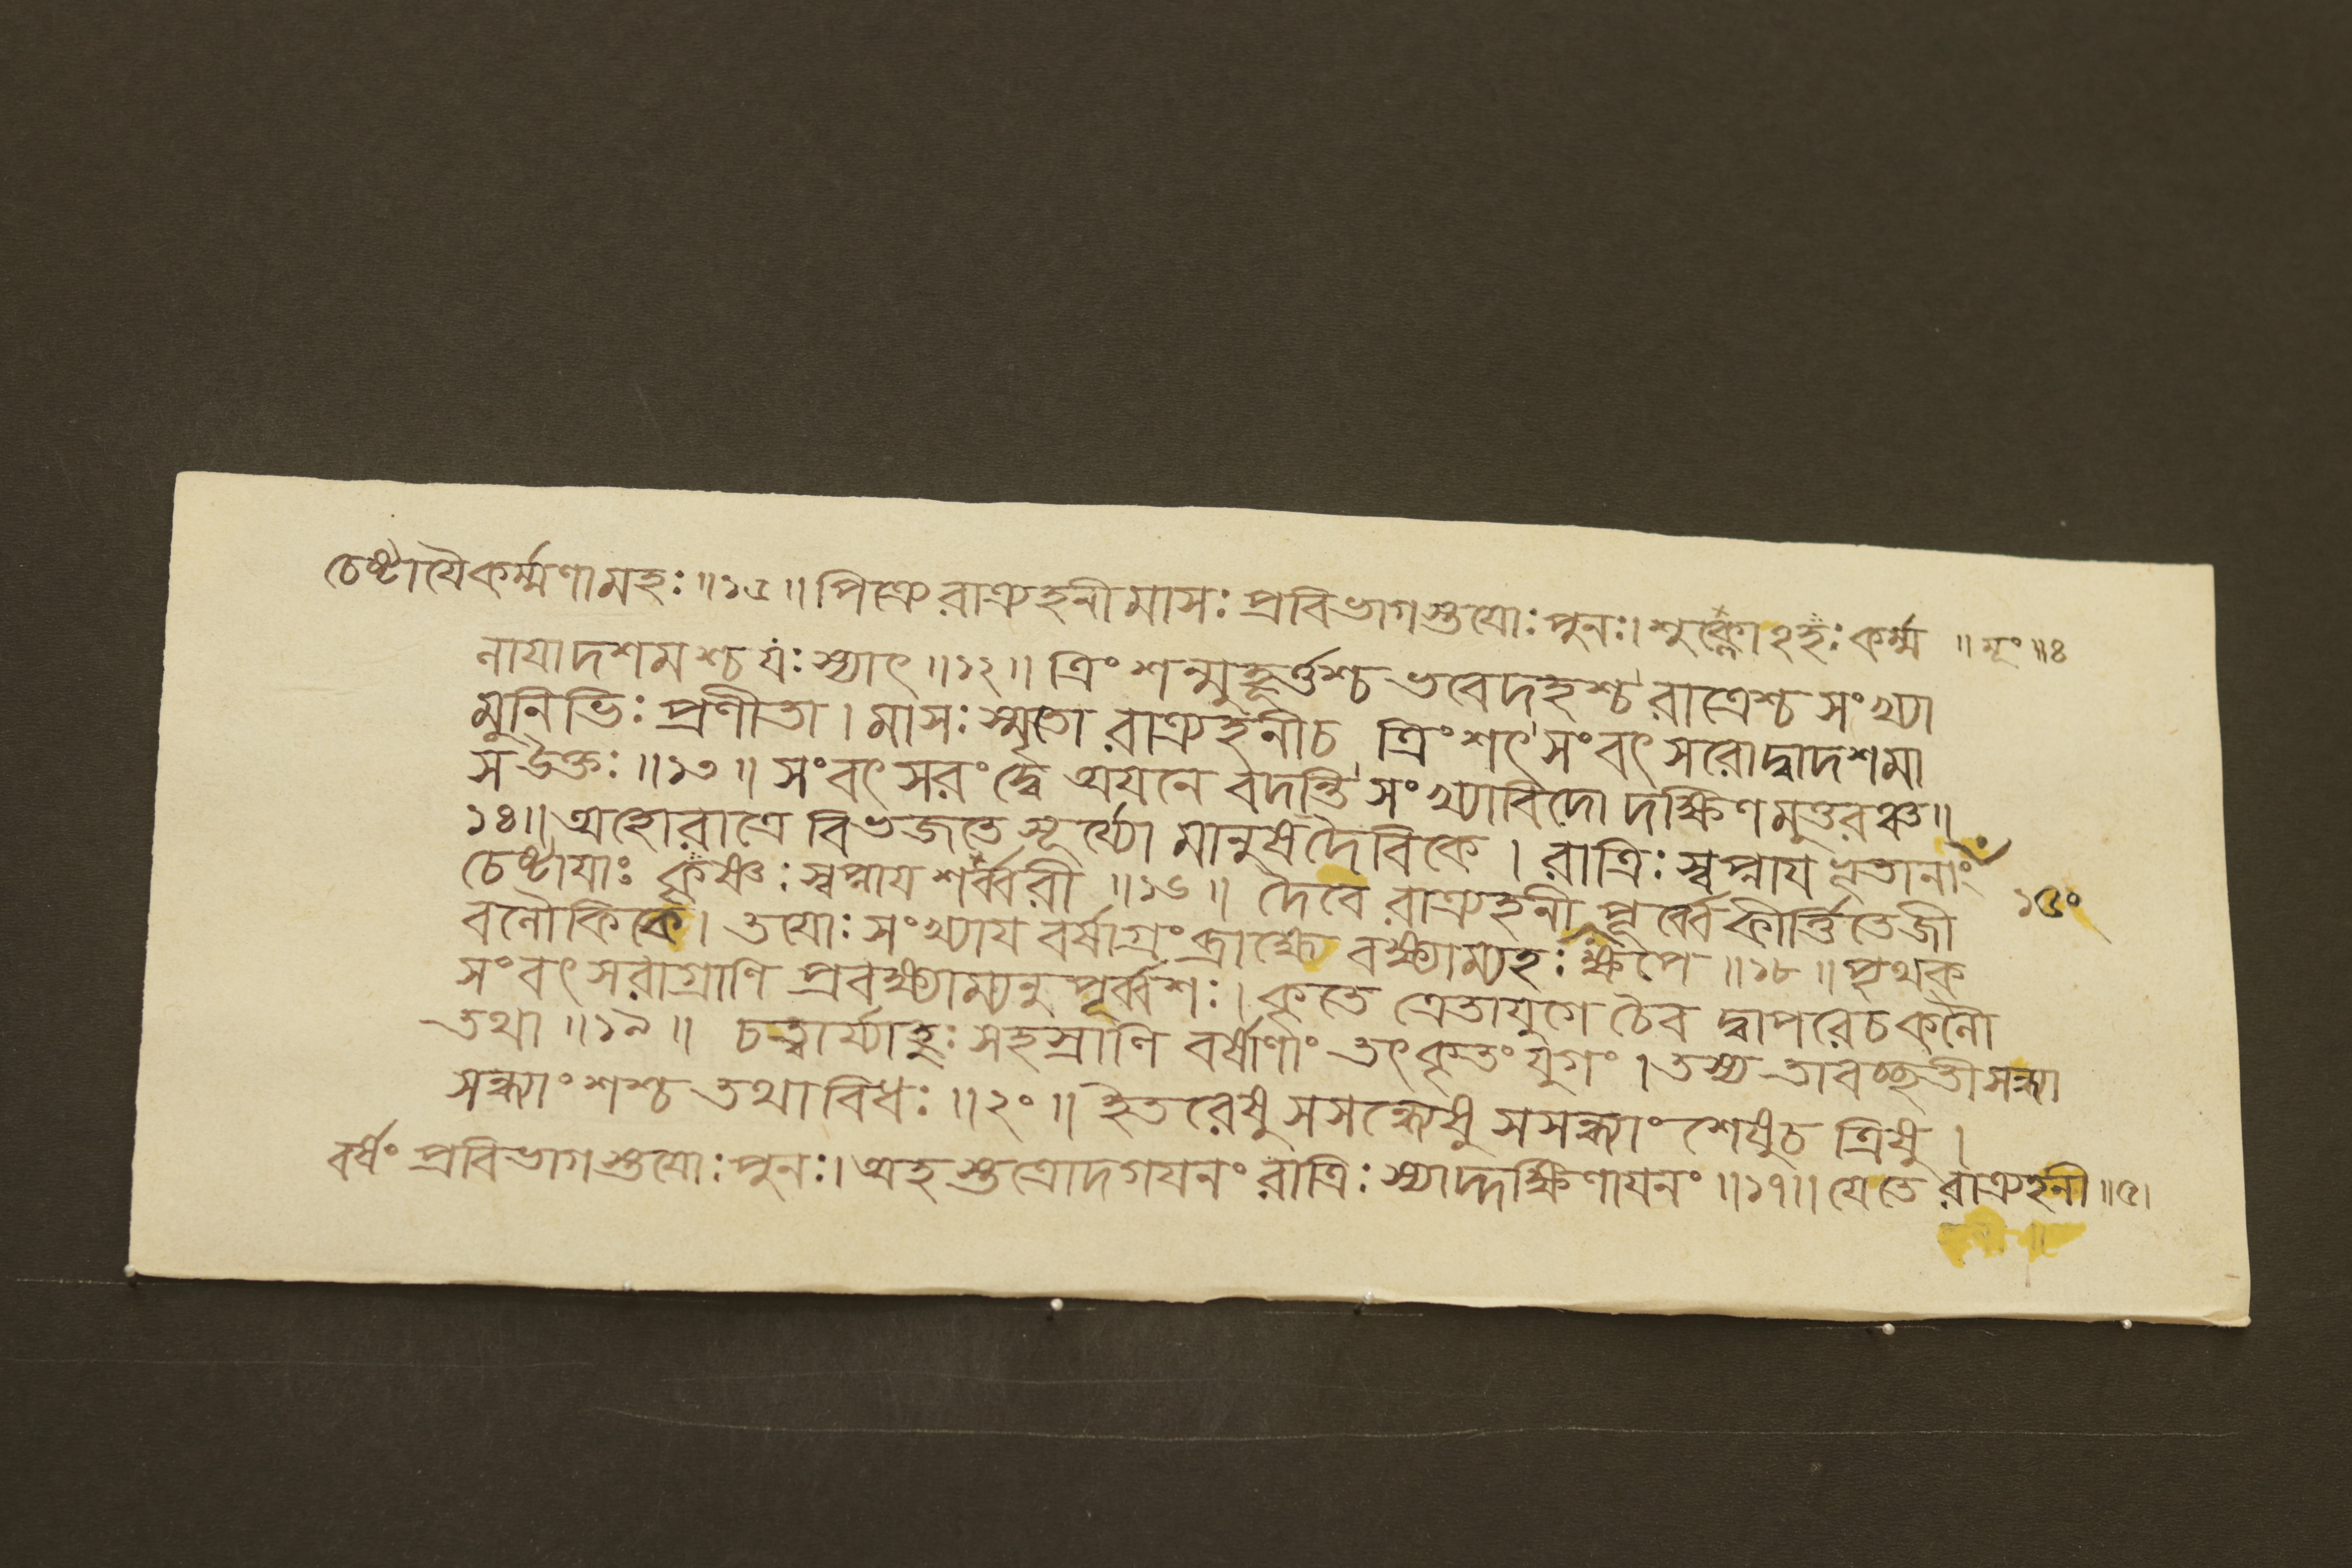 চেষ্টায়ৈ কর্ম্মণামহঃ ॥ ১৫ ॥ পিত্র্যে রাত্র্যহনী মাসঃ প্রবিভাগস্তুয়োঃ পুনঃ। শুক্লোঽহঃ কর্ম্ম ॥ মূং ॥ ৪
নায়াদশমশ্চ যঃ স্যাৎ ॥ ১২ ॥ ত্রিংশন্মুহূর্ত্তশ্চ ভবেদহশ্চ রাত্রেশ্চ সংখ্যা
মুনিভিঃ প্রণীতা। মাসঃ স্মৃতো রাত্র্যহনীচ ত্রিংশৎ সংবৎসরোদ্বাদশমা
স উক্তঃ ॥ ১৩ ॥ সংবৎসরং দ্বে অয়নে বদন্তি সংখ্যাবিদো দক্ষিণমুত্তরঞ্চ ॥
১৪ ॥ অহোরাত্রে বিভজতে সূর্য্যো মানুষদৈবিকে । রাত্রিঃ স্বপ্নায় ভূতানাং
চেষ্টায়াঃ কৃষ্ণঃ স্বপ্নায় শর্ব্বরী ॥ ১৬ ॥ দৈবে রাত্র্যহনী পূর্ব্বে কীর্ত্তিতেজী ১৫০
বলৌকিকে। তয়োঃ সংখ্যায় বর্ষাগ্রং ব্রাহ্মে বক্ষ্যাম্যহঃ ক্ষপে ॥ ১৮ ॥ পৃথক্
সংবৎসরাগ্রাণি প্রবক্ষ্যাম্যনুপূর্ব্বশঃ। কৃতে ত্রেতাযুগে চৈব দ্বাপরেচ কলৌ
তথা ॥ ১৯ ॥ চত্বার্য্যাহুঃ সহস্রাণি বর্ষাণাং তৎকৃতং যুগং । তস্য তাবচ্ছতী সন্ধ্যা
সন্ধ্যাংশশ্চ তথাবিধঃ ॥ ২০ ॥ ইতরেষু সসন্ধ্যেষু সসন্ধ্যাংশেষুচ ত্রিষু ।
বর্ষং প্রবিভাগস্তুয়োঃ পুনঃ। অহস্তত্রোদগয়নং রাত্রিঃ স্যাদ্দক্ষিণায়নং ॥ ১৭ ॥ যেতে রাত্র্যহনী ॥ ৫।